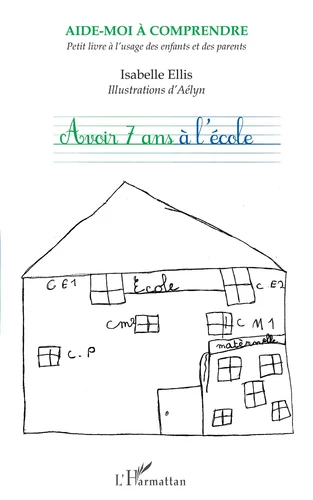 AIDE-MOI À COMPRENDRE
Petit livre à l'usage des enfants et des parents
Isabelle Ellis
Illustrations d'Aélyn
Avoir 7 ans à l'école
CE1 Ecole CE2
cm2 CM1
maternelle
C.P
L'Harmattan